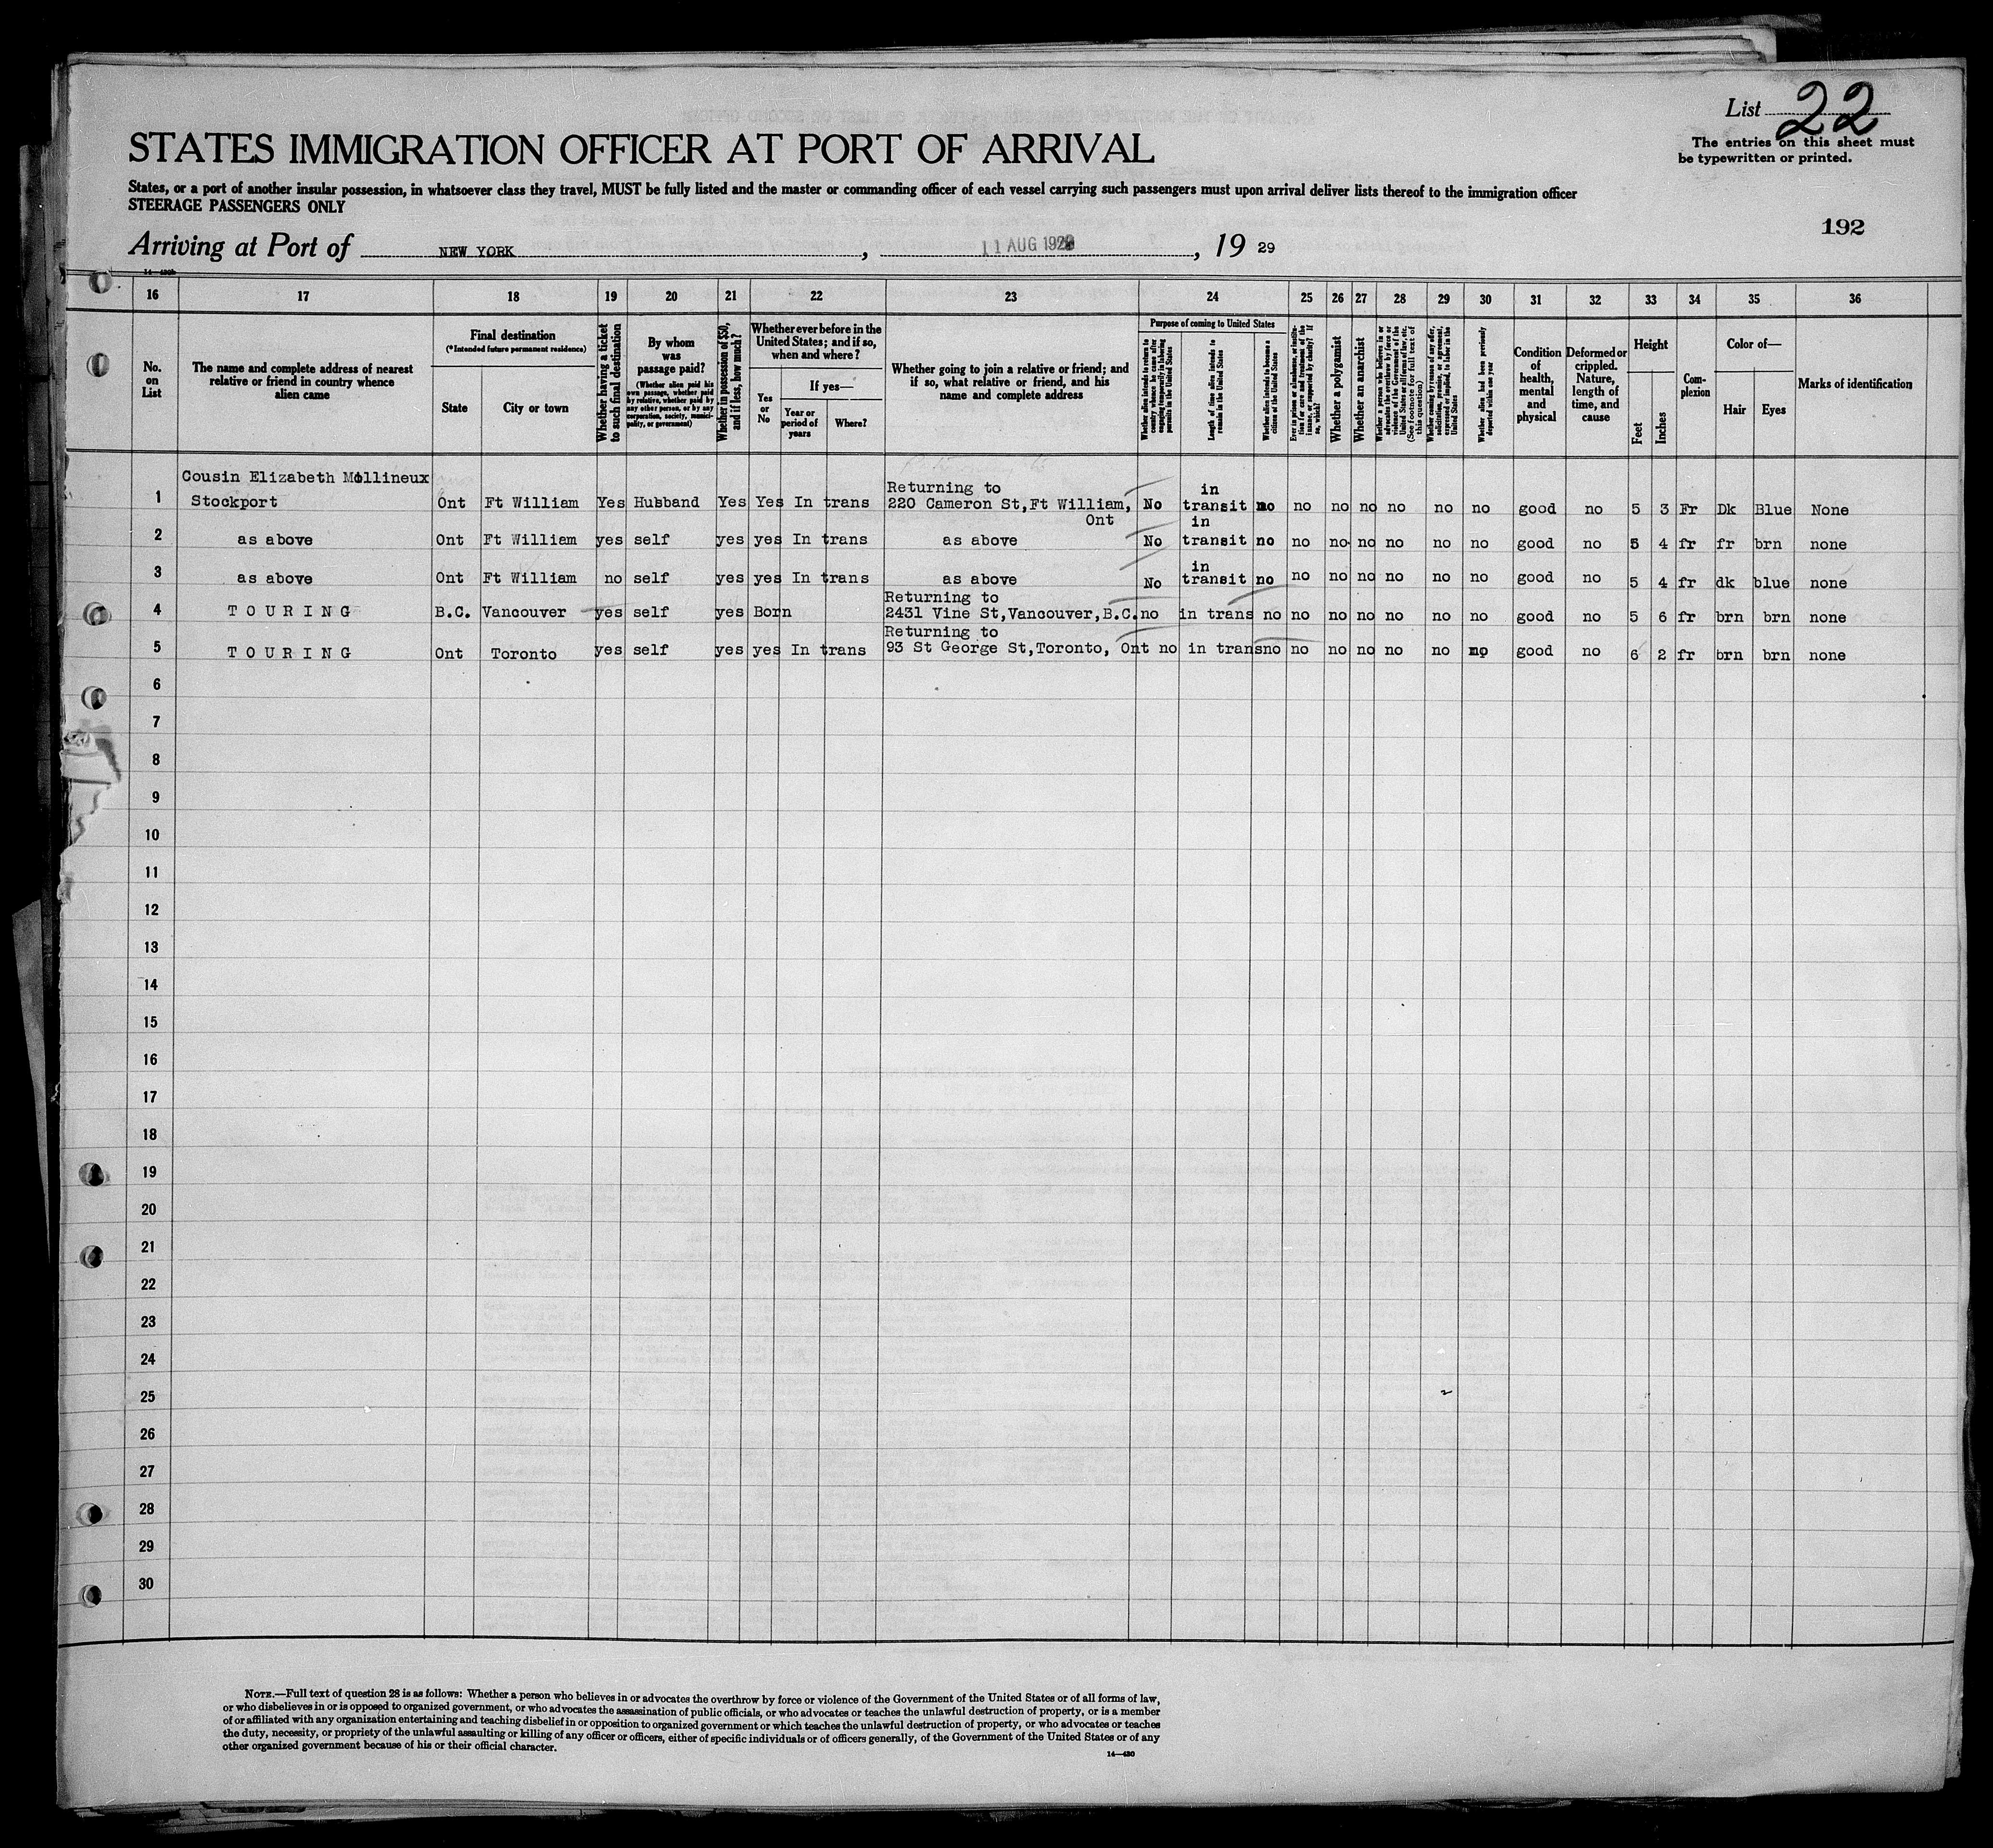 List 22
The entries on this sheet must
be typewritten or printed.
STATES IMMIGRATION OFFICER AT PORT OF ARRIVAL
States, or a port of another insular possession, in whatsoever class they travel, MUST be fully listed and the master or commanding officer of each vessel carrying such passengers must upon arrival deliver lists thereof to the immigration officer
STEERAGE PASSENGERS ONLY
192
Arriving at Port of NEW YORK, 11 AUG 1929, 19 29
16 17 18 19 20 21 22 23 24 25 26 27 28 29 30 31 32 33 34 35 36
No. on List
The name and complete address of nearest relative or friend in country whence alien came
Final destination
(*Intended future permanent residence)
State
City or town
Whether having a ticket to such final destination
By whom was passage paid?
(Whether alien paid his own passage, whether paid by relative, whether paid by any other person, or by any corporation, society, municipality, or government)
Whether in possession of $50, and if less, how much?
Whether ever before in the United States; and if so, when and where?
Yes or No
If yes—
Year or period of years
Where?
Whether going to join a relative or friend; and if so, what relative or friend, and his name and complete address
Purpose of coming to United States
Whether alien intends to return to country whence he came after engaging temporarily in laboring pursuits in the United States
Length of time alien intends to remain in the United States
Whether alien intends to become a citizen of the United States
Ever in prison or almshouse, or institution for care and treatment of the insane, or supported by charity? If so, which?
Whether a polygamist
Whether an anarchist
Whether a person who believes in or advocates the overthrow by force or violence of the Government of the United States or all forms of law, etc. (See footnote for full text of this question)
Whether coming by reason of any offer, solicitation, promise, or agreement, expressed or implied, to labor in the United States
Whether alien had been previously deported within one year
Condition of health, mental and physical
Deformed or crippled. Nature, length of time, and cause
Height
Feet
Inches
Complexion
Color of—
Hair
Eyes
Marks of identification
Cousin Elizabeth Mollineux
1 Stockport Ont Ft William Yes Hubband Yes Yes In trans Returning to 220 Cameron St,Ft William, Ont No in transit no no no no no no no good no 5 3 Fr Dk Blue None
2 as above Ont Ft William yes self yes yes In trans as above No in transit no no no no no no no good no 5 4 fr fr brn none
3 as above Ont Ft William no self yes yes In trans as above No in transit no no no no no no no good no 5 4 fr dk blue none
4 TOURING B.C. Vancouver yes self yes Born Returning to 2431 Vine St,Vancouver,B.C. no in trans no no no no no no no good no 5 6 fr brn brn none
5 TOURING Ont Toronto yes self yes yes In trans Returning to 93 St George St,Toronto, Ont no in trans no no no no no no no good no 6 2 fr brn brn none
6
7
8
9
10
11
12
13
14
15
16
17
18
19
20
21
22
23
24
25
26
27
28
29
30
NOTE.—Full text of question 28 is as follows: Whether a person who believes in or advocates the overthrow by force or violence of the Government of the United States or of all forms of law,
or who disbelieves in or is opposed to organized government, or who advocates the assassination of public officials, or who advocates or teaches the unlawful destruction of property, or is a member
of or affiliated with any organization entertaining and teaching disbelief in or opposition to organized government or which teaches the unlawful destruction of property, or who advocates or teaches
the duty, necessity, or propriety of the unlawful assaulting or killing of any officer or officers, either of specific individuals or of officers generally, of the Government of the United States or of any
other organized government because of his or their official character.
14—430